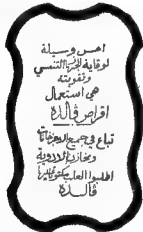 احسن وسيلة
لوقاية الجهاز التنفسي
وتقويته
هي استعمال
اقراص ڤالدا
تباع في جميع الاجزاخانات
ومخازن الادوية
اطلبوا العلب مكتوب عليها
ڤالدا